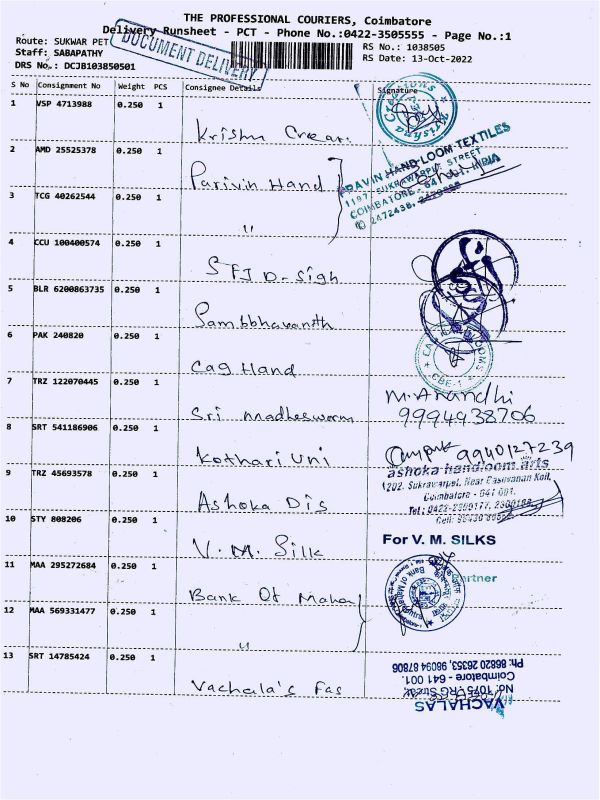 THE PROFESSIONAL COURIERS, Coimbatore
Delivery Runsheet - PCT - Phone No.:0422-3505555 - Page No.:1
Route: SUKWAR PET
RS No.: 1038505
Staff: SABAPATHY
RS Date: 13-Oct-2022
DRS No.: DCJB103850501
DOCUMENT DELIVERY
S No Consignment No Weight PCS Consignee Details Signature
1 VSP 4713988 0.250 1
Krishn Creat.
2 AMD 25525378 0.250 1
Parivin Hand
PRAVIN HAND-LOOM TEXTILES
1197, SUKRAWARPET STREET
COIMBATORE INDIA
3 TCG 40262544 0.250 1
"
4 CCU 100400574 0.250 1
SFI D-Sigh
5 BLR 6200863735 0.250 1
Sambbhavanth
6 PAK 240820 0.250 1
Cag Hand
CBE-1
7 TRZ 122070445 0.250 1
Sri Madheswarm
M. Anandhi
9994938706
8 SRT 541186906 0.250 1
Kothari Uni
9940127239
9 TRZ 45693578 0.250 1
Ashoka Dis
ashoka handloom arts
1202, Sukrawarpet, Near Easwaran Koil,
Coimbatore - 641 001.
10 STY 808206 0.250 1
V. M. Silk
For V. M. SILKS
Partner
11 MAA 295272684 0.250 1
Bank Of Maha
Bank of Maharashtra
12 MAA 569331477 0.250 1
"
13 SRT 14785424 0.250 1
Vachala's Fas
VACHALAS
No: 1075, RG Street,
Coimbatore - 641 001.
Ph: 86820 26353, 98094 87806